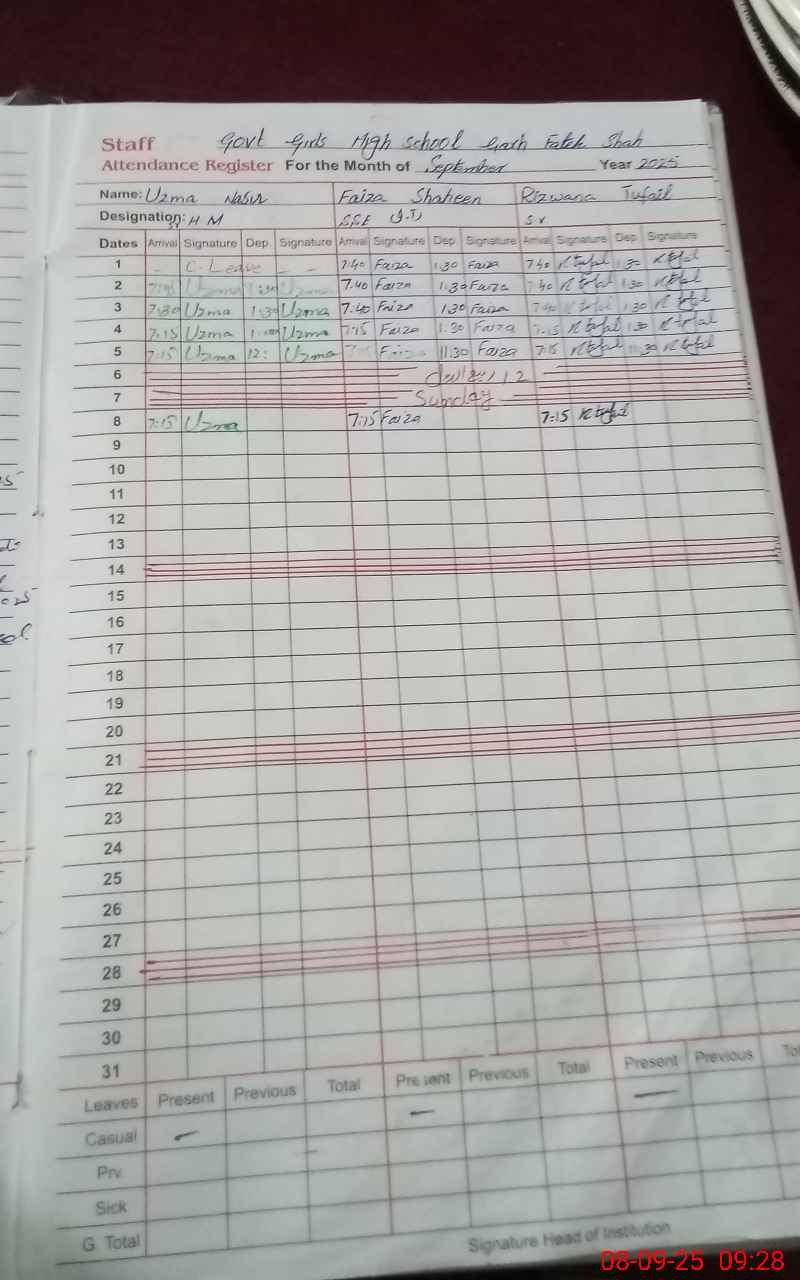 Staff Govt Girls High School Garh Fateh Shah
Attendance Register For the Month of September Year 2025
Name: Uzma Nasir Faiza Shaheen Rizwana Tufail
Designation: Sr H M SSE (I.T) S.V
Dates Arrival Signature Dep. Signature Arrival Signature Dep Signature Arrival Signature Dep. Signature
1 - C. Leave - - 7:40 Faiza 1:30 Faiza 7:40 R tufail 1:30 R tufail
2 Uzma Uzma 7.40 Faiza 1:30 Faiza 7:40 R tufail 1:30 R tufail
3 7:30 Uzma 1:30 Uzma 7:40 Faiza 1:30 Faiza 7:40 R tufail 1:30 R tufail
4 7:15 Uzma Uzma 7:15 Faiza 1:30 Faiza 7:15 R tufail 1:30 R tufail
5 7:15 Uzma 12: Uzma Faiza 11:30 Faiza 7:15 R tufail 11:30 R tufail
6
7 Sunday
8 7:15 Uzma 7:15 Faiza 7:15 R tufail
9
10
11
12
13
14
15
16
17
18
19
20
21
22
23
24
25
26
27
28
29
30
31
Leaves Present Previous Total Present Previous Total Present Previous
Casual - - -
Prv.
Sick
G. Total
Signature Head of Institution
08-09-25 09:28